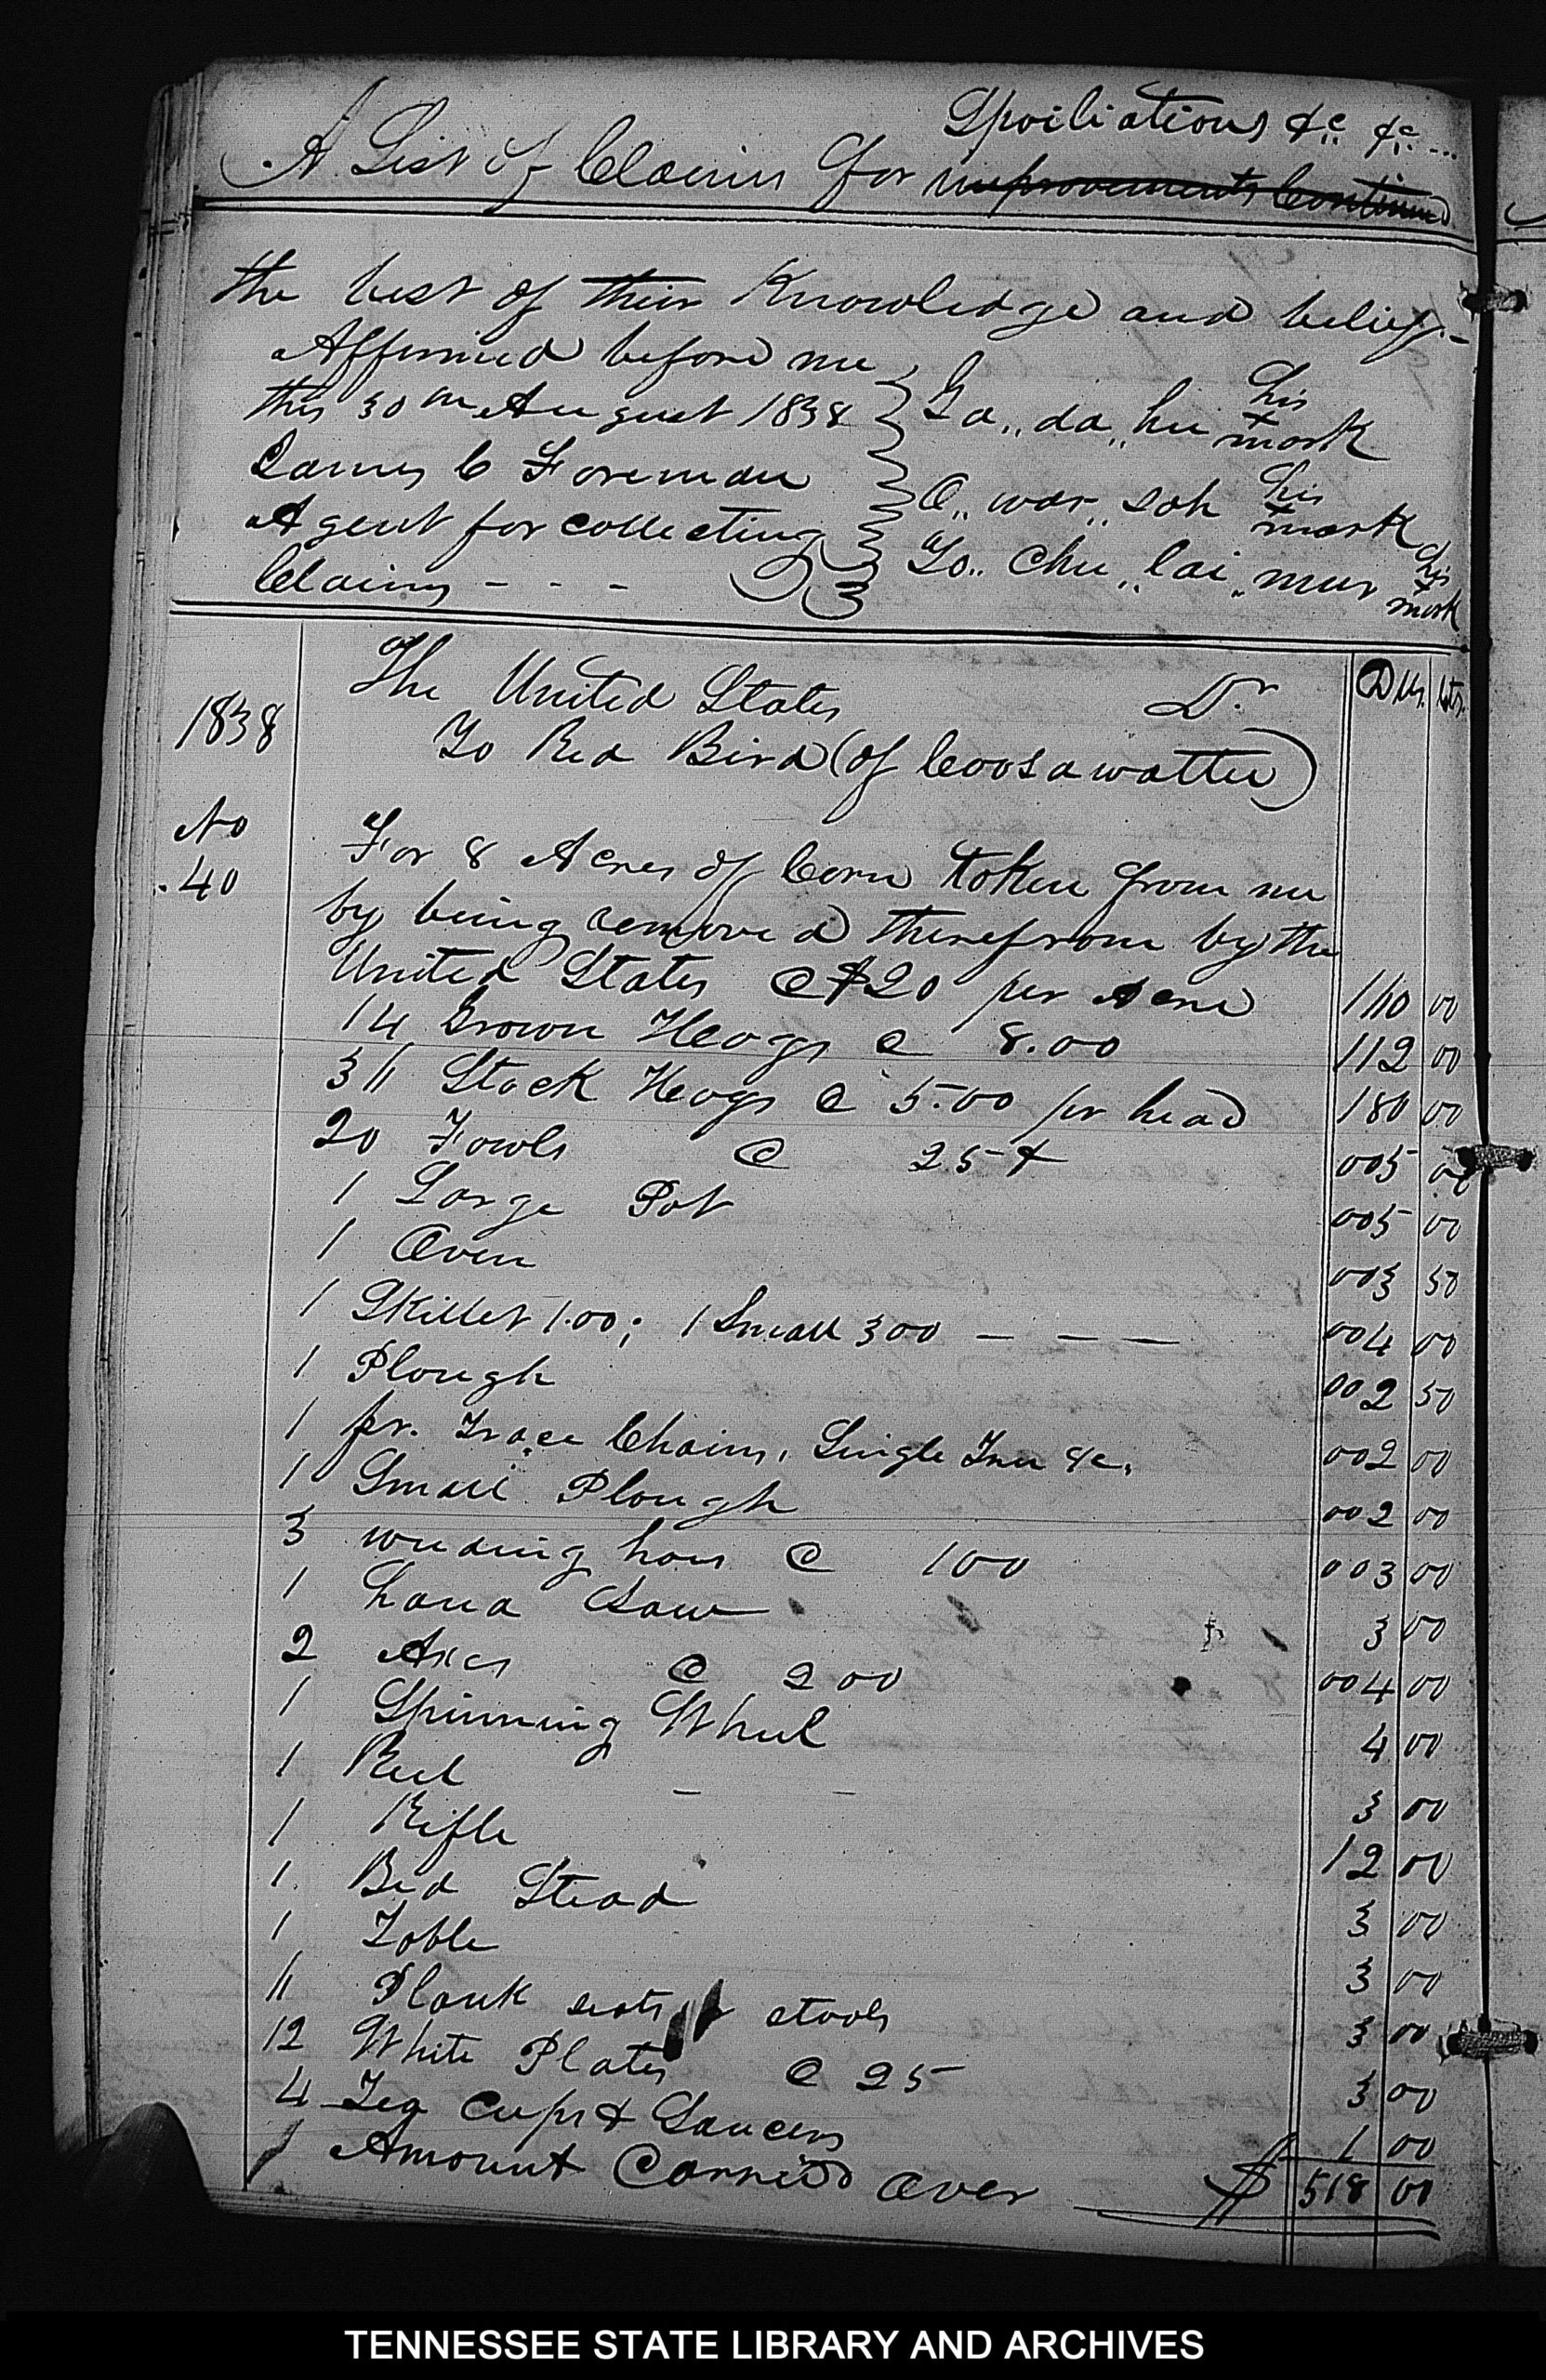 Spoiliations &c &c ...
A List of Claims for improvements Continued
the best of their Knowledge and belief.
Affirmed before me
this 30th August 1838
James C Foreman
Agent for collecting
Claims - - -
Ta,, da,, hee his x mark
O,, war,, sah his x mark
To,, Chu,, lai,, mur his x mark
1838
The United States Dr
Dlls. Cts.
To Red Bird (of Coosawattee)
No 40
For 8 Acres of Corn taken from me
by being removed therefrom by the
United States @ $20 per Acre 160 00
14 Grown Hogs @ 8.00 112 00
36 Stock Hogs @ 5.00 per head 180 00
20 Fowls @ 25 ¢ 005 00
1 Large Pot 005 00
1 Oven 003 50
1 Skillet 1.00; 1 Small 300 - - - 004 00
1 Plough 002 50
1 pr. Trace Chains, Single Tree &c. 002 00
1 Small Plough 002 00
3 weeding hoes @ 100 003 00
1 hand Saw 3 00
2 Axes @ 200 004 00
1 Spinning Wheel 4 00
1 Reel - - 3 00
1 Rifle 12 00
1 Bed Stead 3 00
1 Table 3 00
6 Plank seats stools 3 00
12 White Plates @ 25 3 00
4 Tea Cups & Saucers 1 00
Amount Carried Over $ 518 00
TENNESSEE STATE LIBRARY AND ARCHIVES